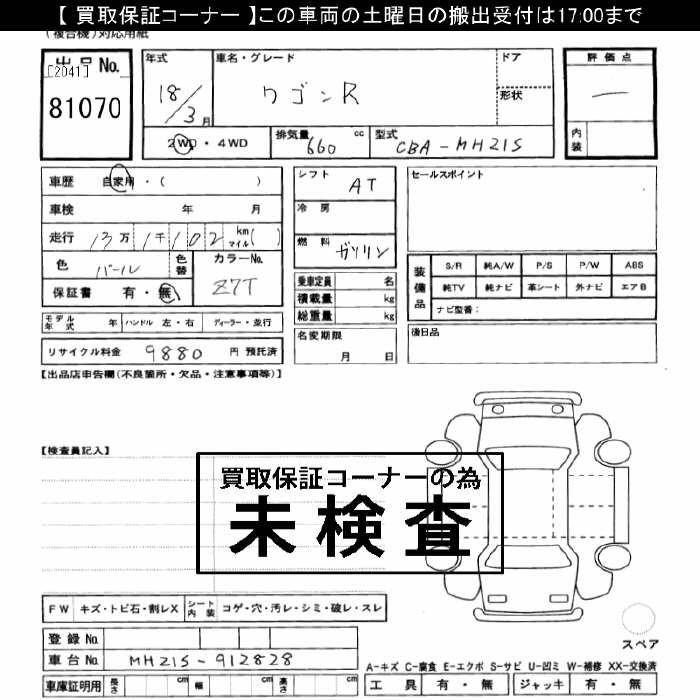 【 買取保証コーナー 】この車両の土曜日の搬出受付は17:00まで
(複合機)対応用紙
出品 No.
[2041]
81070
年式
18/3月
車名・グレード
ワゴンR
ドア
形状
評価点
—
内装
2WD・4WD
排気量 660 cc
型式 CBA-MH21S
車歴 自家用・( )
車検 年 月
走行 13万 1千 102 km マイル( )
色 パール
色替
カラーNo.
Z7T
保証書 有・無
モデル年式 年
ハンドル 左・右
ディーラー・並行
リサイクル料金 9880 円 預託済
シフト AT
冷房
燃料 ガソリン
乗車定員 名
積載量 kg
総重量 kg
名変期限
月 日
セールスポイント
装備品
S/R 純A/W P/S P/W ABS
純TV 純ナビ 革シート 外ナビ エアB
ナビ型番:
後日品
【出品店申告欄(不良箇所・欠品・注意事項等)】
【検査員記入】
買取保証コーナーの為
未検査
FW キズ・トビ石・割レX
シート内装 コゲ・穴・汚レ・シミ・破レ・スレ
登録 No.
車台 No. MH21S-912828
車庫証明用 長さ cm 幅 cm 高さ cm
スペア
A-キズ C-腐食 E-エクボ S-サビ U-凹ミ W-補修 XX-交換済
工具 有・無 ジャッキ 有・無